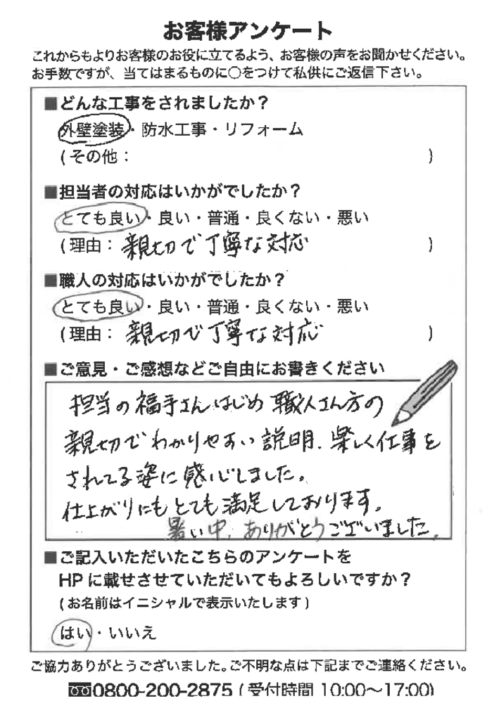 お客様アンケート
これからもよりお客様のお役に立てるよう、お客様の声をお聞かせください。
お手数ですが、当てはまるものに○をつけて私供にご返信下さい。
■どんな工事をされましたか?
外壁塗装・防水工事・リフォーム
(その他: )
■担当者の対応はいかがでしたか?
とても良い・良い・普通・良くない・悪い
(理由: 親切で丁寧な対応 )
■職人の対応はいかがでしたか?
とても良い・良い・普通・良くない・悪い
(理由: 親切で丁寧な対応 )
■ご意見・ご感想などご自由にお書きください
担当の福手さんはじめ職人さん方の
親切でわかりやすい説明、楽しく仕事を
されてる姿に感心しました。
仕上がりにもとても満足しております。
暑い中、ありがとうございました。
■ご記入いただいたこちらのアンケートを
HPに載せさせていただいてもよろしいですか?
(お名前はイニシャルで表示いたします)
はい・いいえ
ご協力ありがとうございました。ご不明な点は下記までご連絡ください。
0800-200-2875 (受付時間 10:00〜17:00)